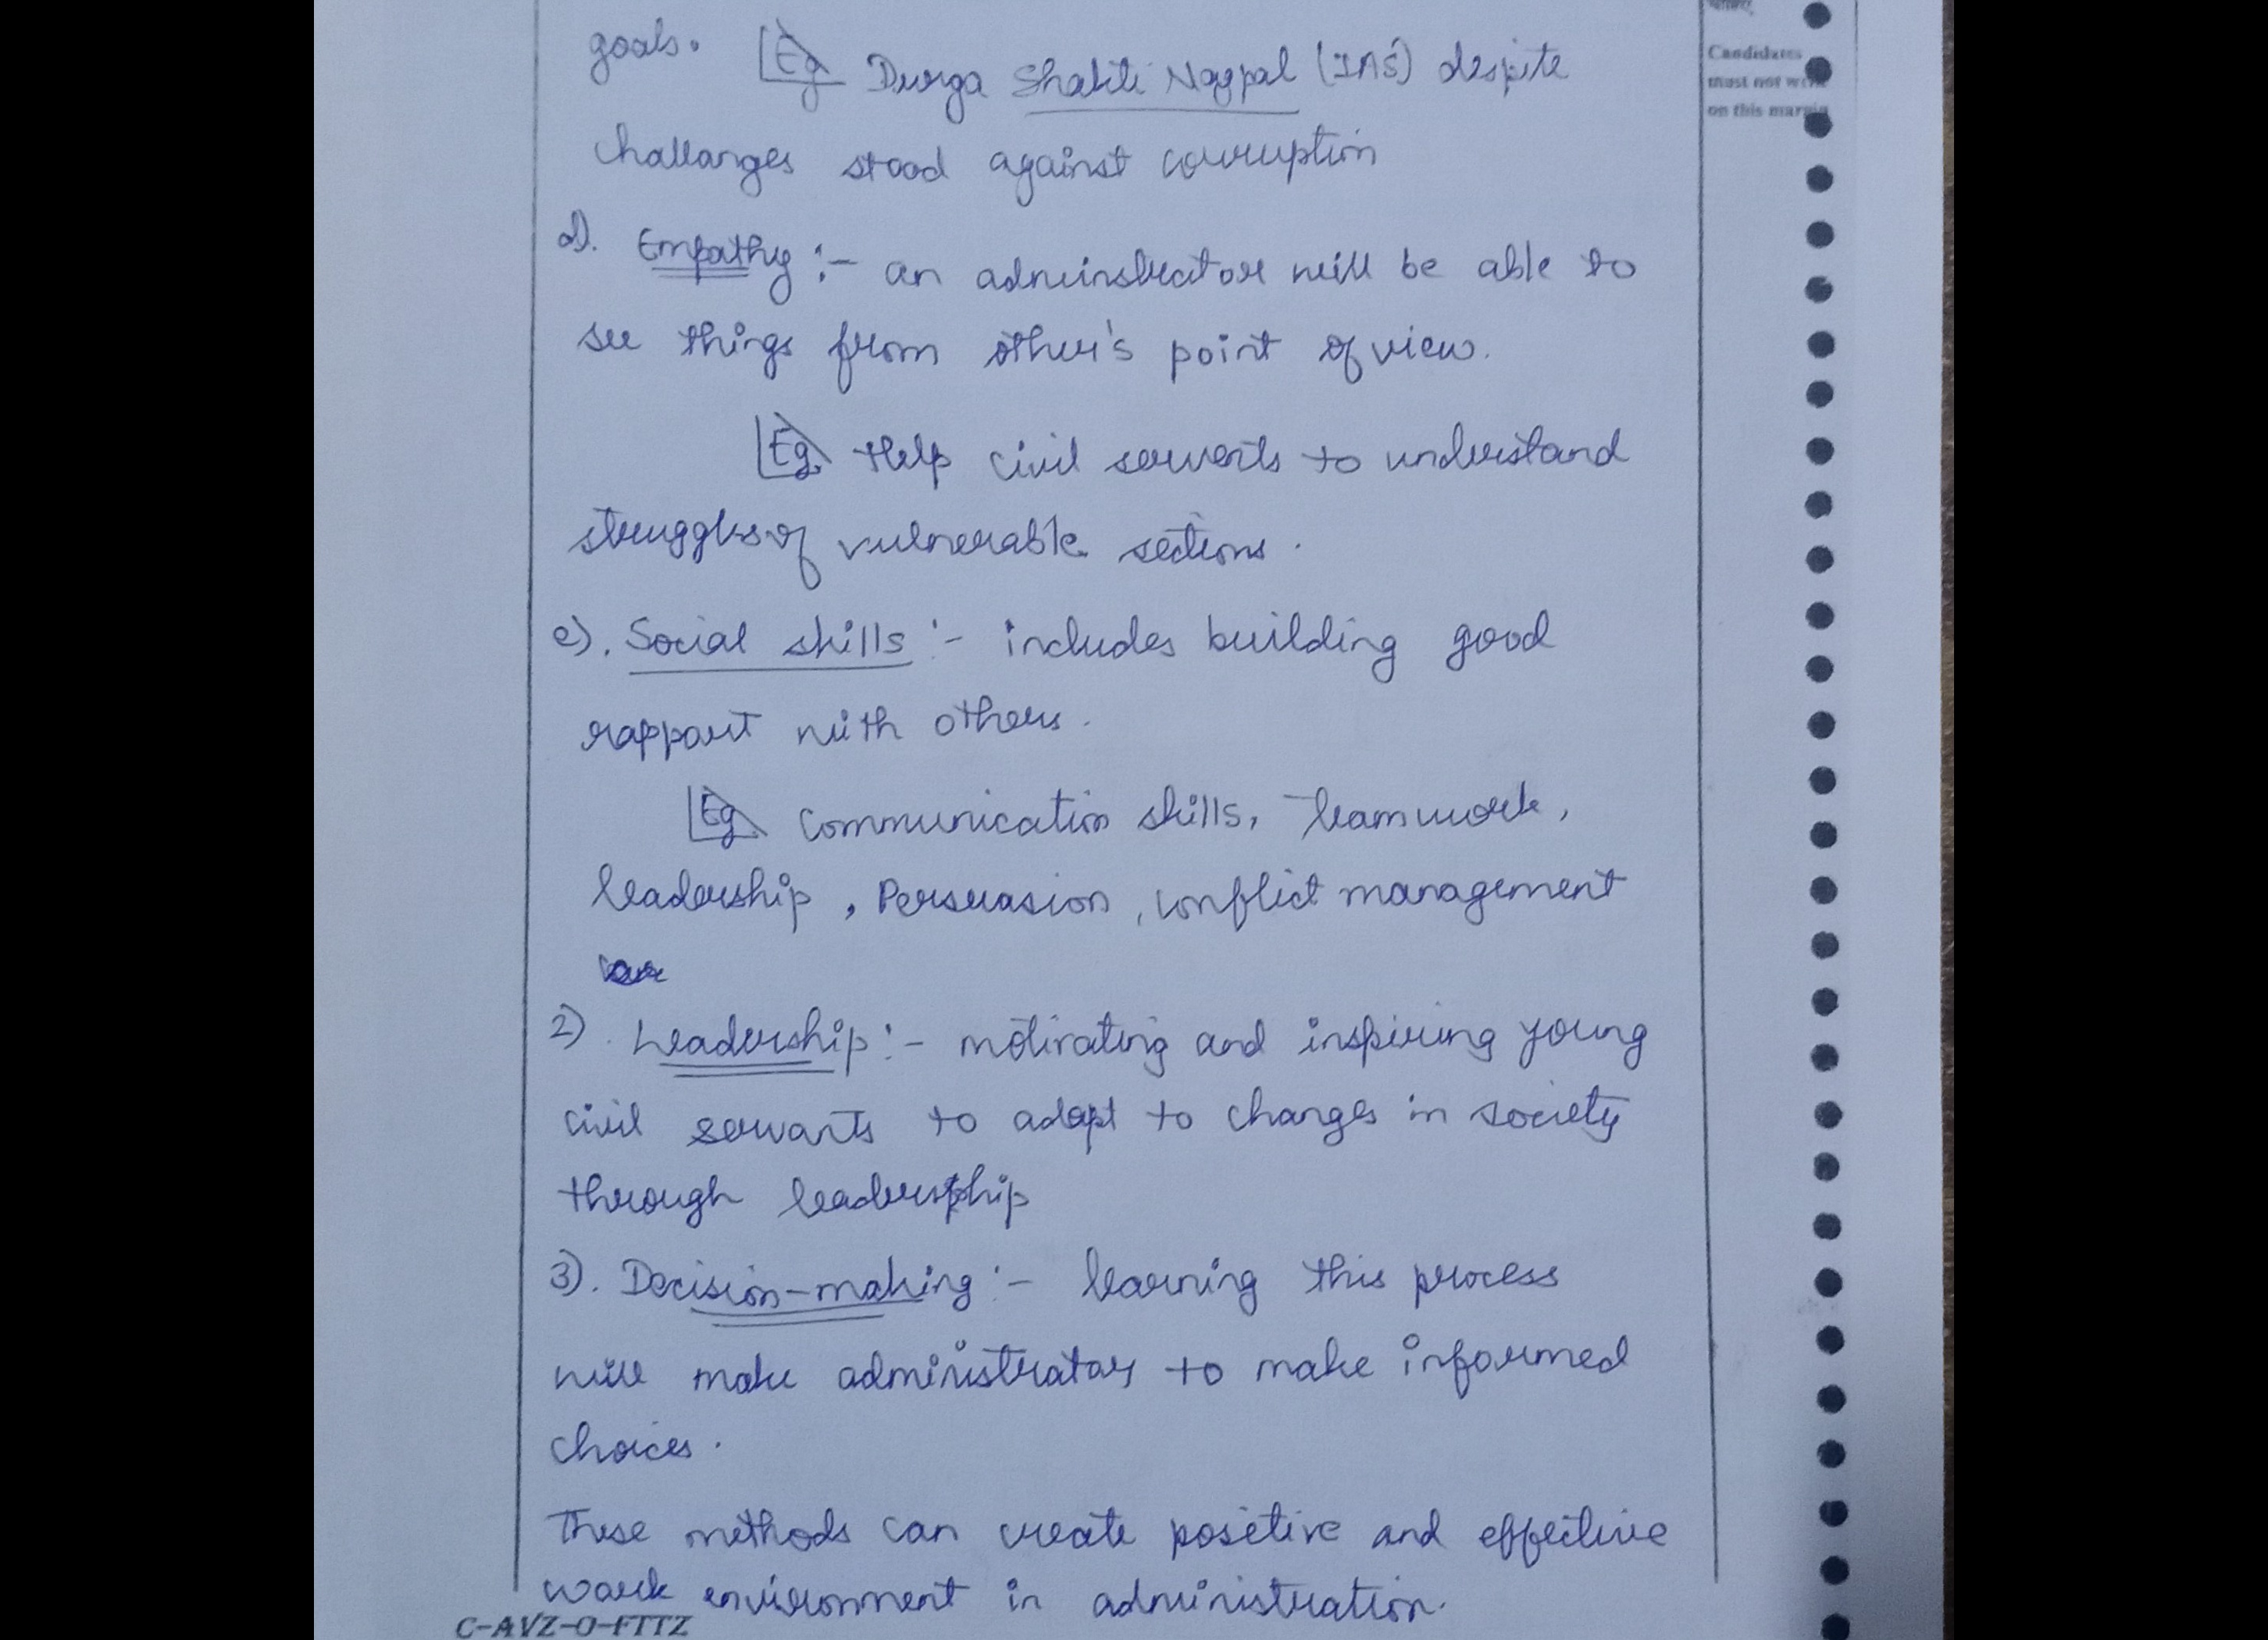 goals. Eg Durga Shakti Nagpal (IAS) despite
Candidates
must not write
on this margin
challanges stood against corruption
d). Empathy :- an adminstrator will be able to
see things from other's point of view.
Eg. Help civil servents to understand
struggles of vulnerable sections.
e). Social skills :- includes building good
rapport with others.
Eg. Communication skills, Teamwork,
leadership, Persuasion, conflict management
2). Leadership :- motivating and inspiring young
civil servants to adapt to changes in society
through leadership
3). Decision-making :- learning this process
will make administrators to make informed
choices.
These methods can create positive and effective
work environment in administration.
C-AVZ-O-FTTZ